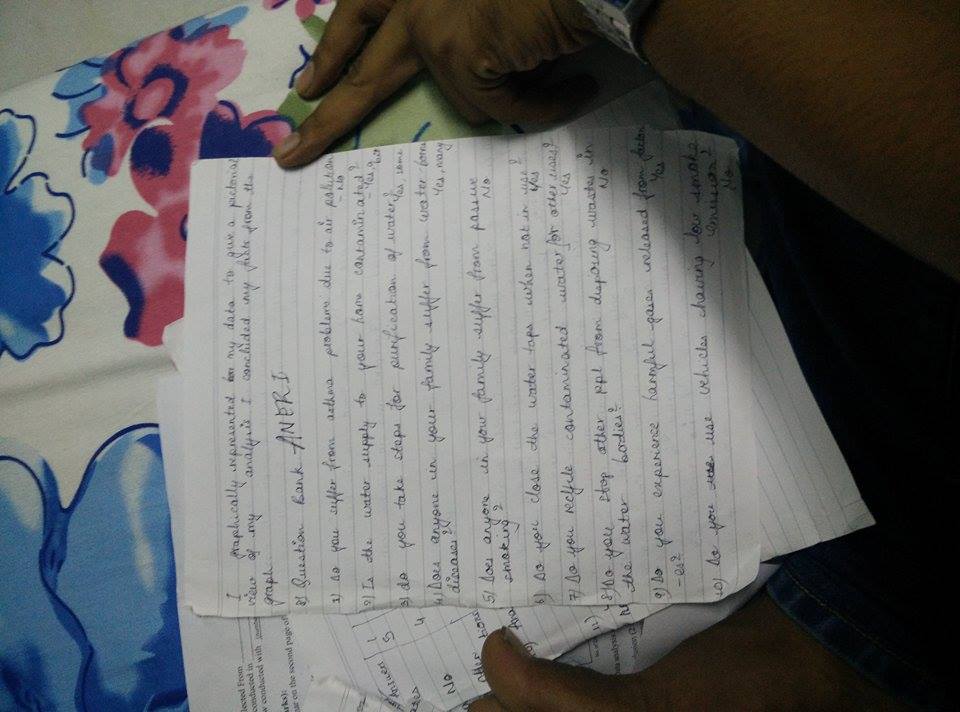 I graphically represented my data to give a pictorial
view of my analysis I concluded my facts from the
graph.
8) Question Bank ANERI
1) Do you suffer from asthma problems due to air pollution
- No
2) Is the water supply to your home contaminated?
- Yes, a bit
3) do you take steps for purification of water?
Yes, some
4) Does anyone in your family suffer from water borne
diseases? Yes, many
5) Does anyone in your family suffer from passive
smoking? No
6) Do you close the water taps when not in use?
Yes
7) Do you recycle contaminated water for other uses?
Yes
8) Do you stop other ppl from disposing wastes in
the water bodies? No
9) Do you experience harmful gases released from factori
-es? Yes
10) Do you use vehicles having low smoke
emission?
No
lected From
conducted in
w conducted with
arks):
ar on the second page of
1
5
4
No
11)